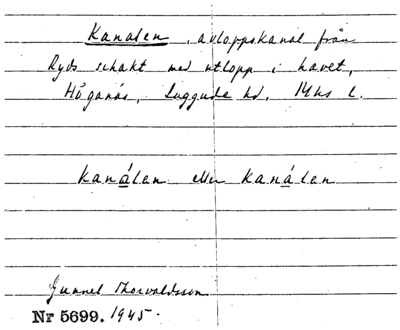 Kanalen, avloppskanal från
Ryds schakt med utlopp i havet,
Höganäs, Luggude hd, M-hs l.
kanálen eller kanálen
Gunnel Thorvaldsson
Nr 5699. 1945.